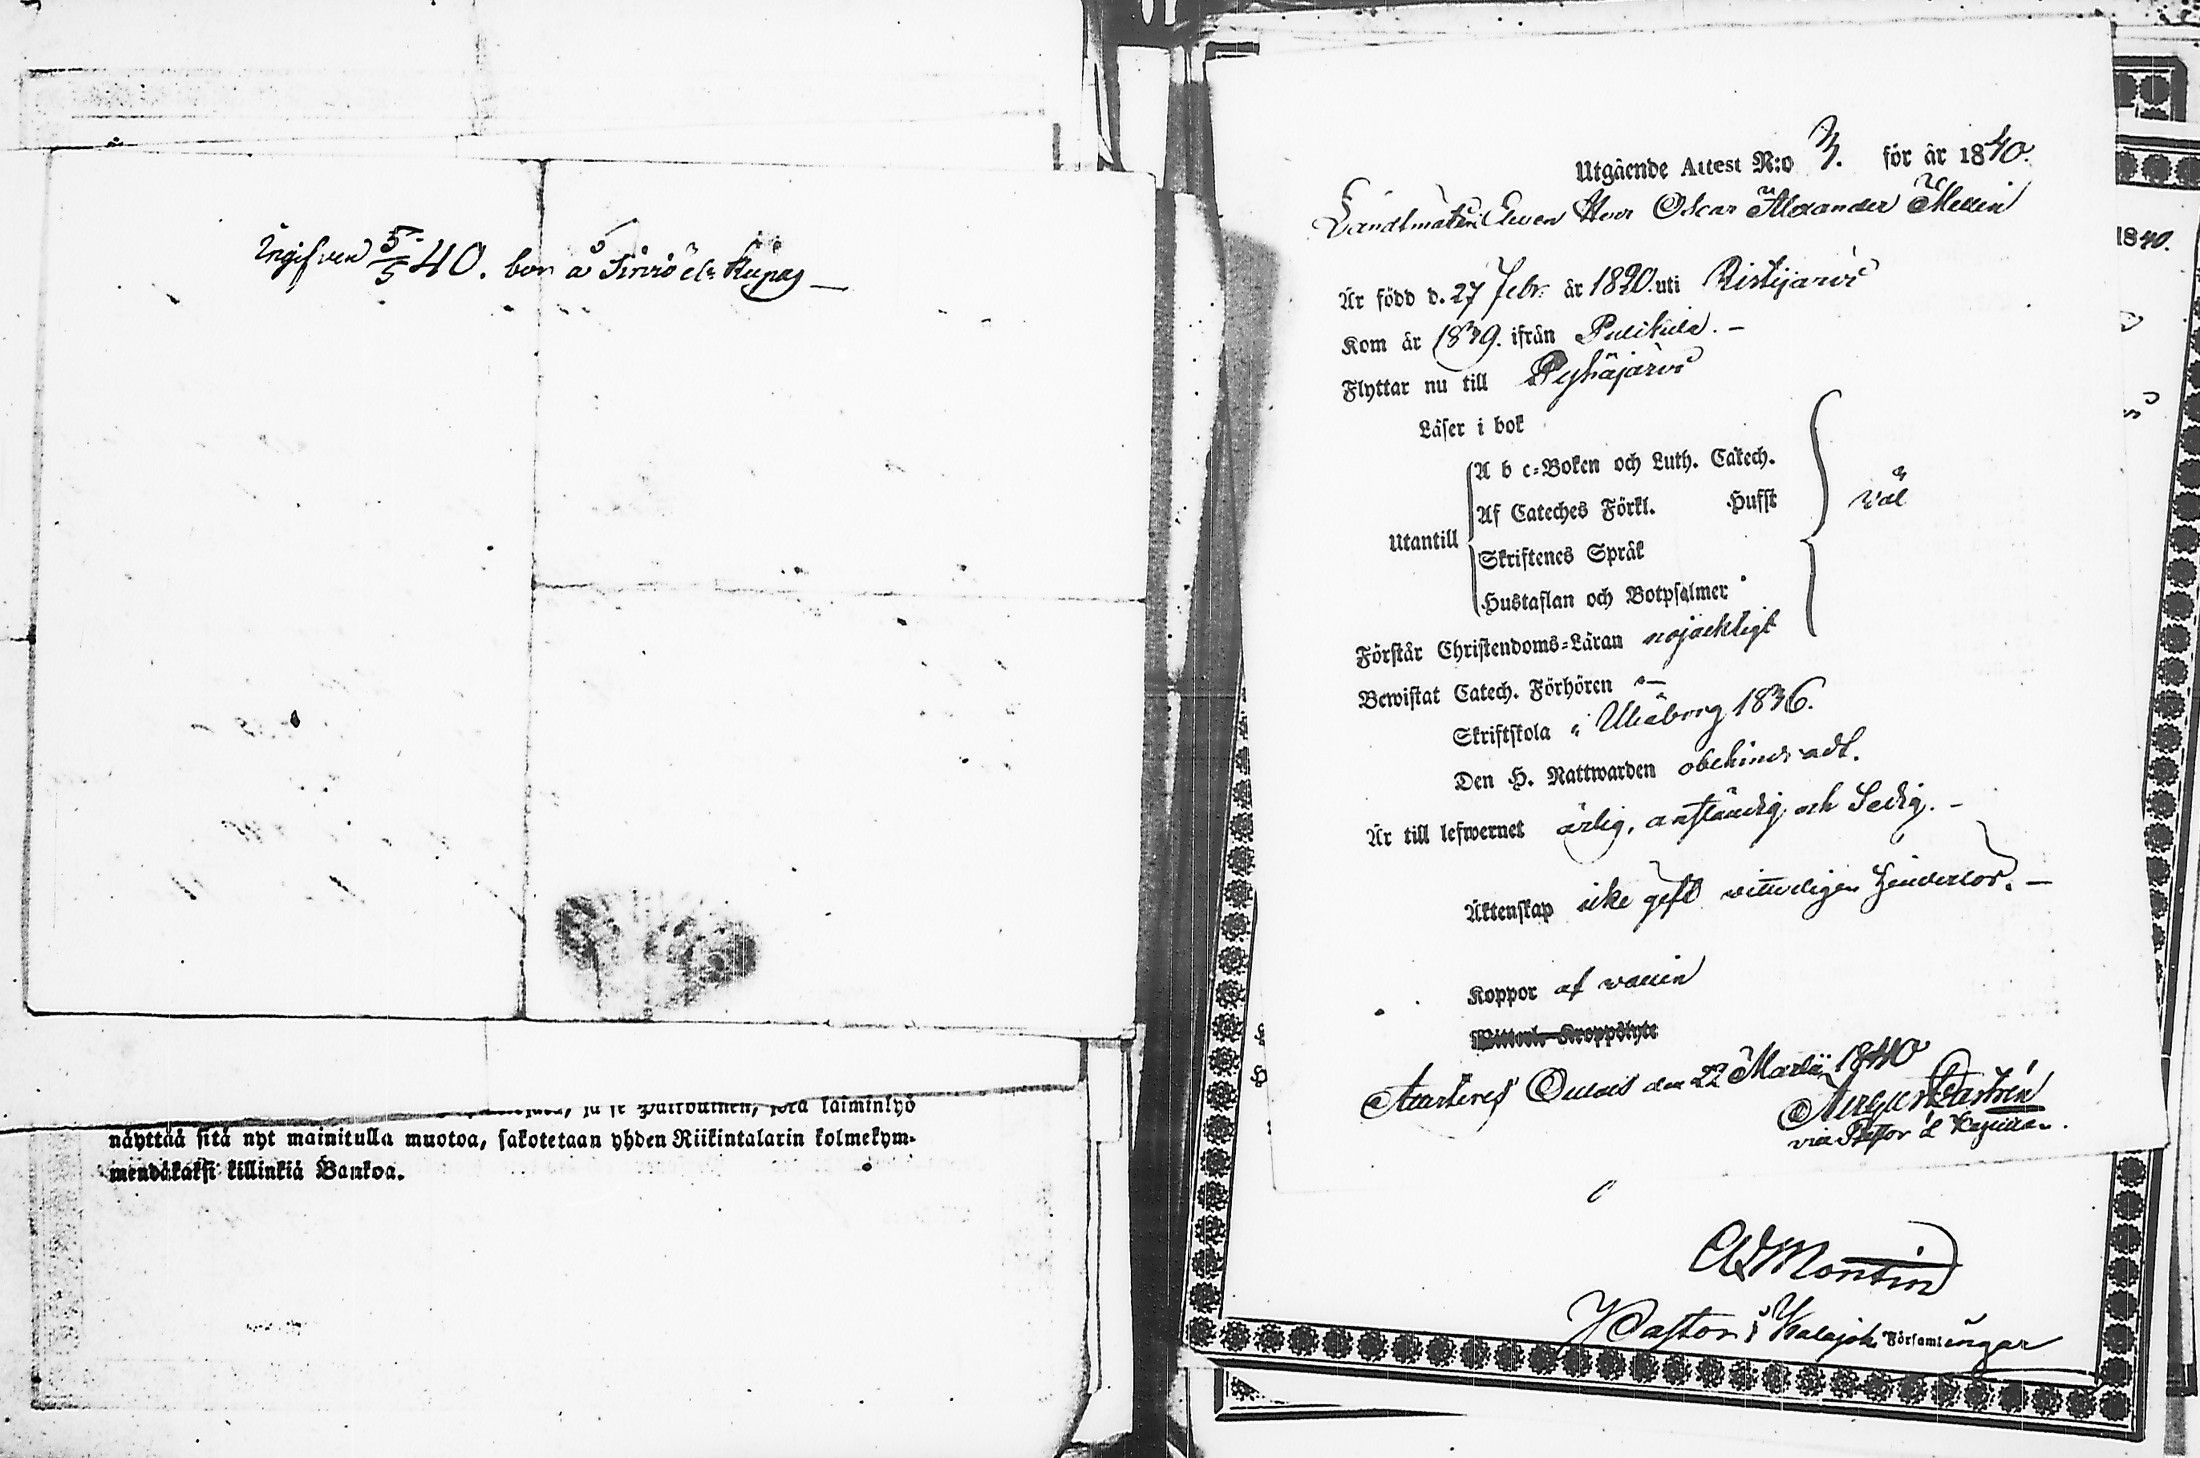 Ingifven 5/5 40. bor å
näyttää sitä nyt mainitulla muotoa, sakotetaan yhden Riikintalarin kolmekym-
mendäkaksi killinkiä Bankoa.
Utgående Attest N:o 3. för år 1840.
Landtmäteri Eleven Herr Oscar Alexander
Är född d. 27 Febr. år 1820 uti Ristijärvi
Kom år 1839. ifrån Pulkila. –
Flyttar nu till Pyhäjärvi
Läser i bok
Utantill
A b c-Boken och Luth. Catech.
Af Cateches Förkl. Hufst
Skriftenes Språk
Hustaflan och Botpsalmer
väl
Förstår Christendoms-Läran nöjacktigt
Bewistat Catech. Förhören –
Skriftskola i Uleåborg 1836.
Den H. Nattwarden obehindradt.
Är till lefwernet ärlig, anständig och Sedig. –
Äktenskap icke gift vitterligen hinderlös. –
Koppor af
Witterl. Kroppslyte
den 22 Martii 1840
Castrén
vice Pastor
1840.
Montin
Pastor i Kalajoki Församlingar